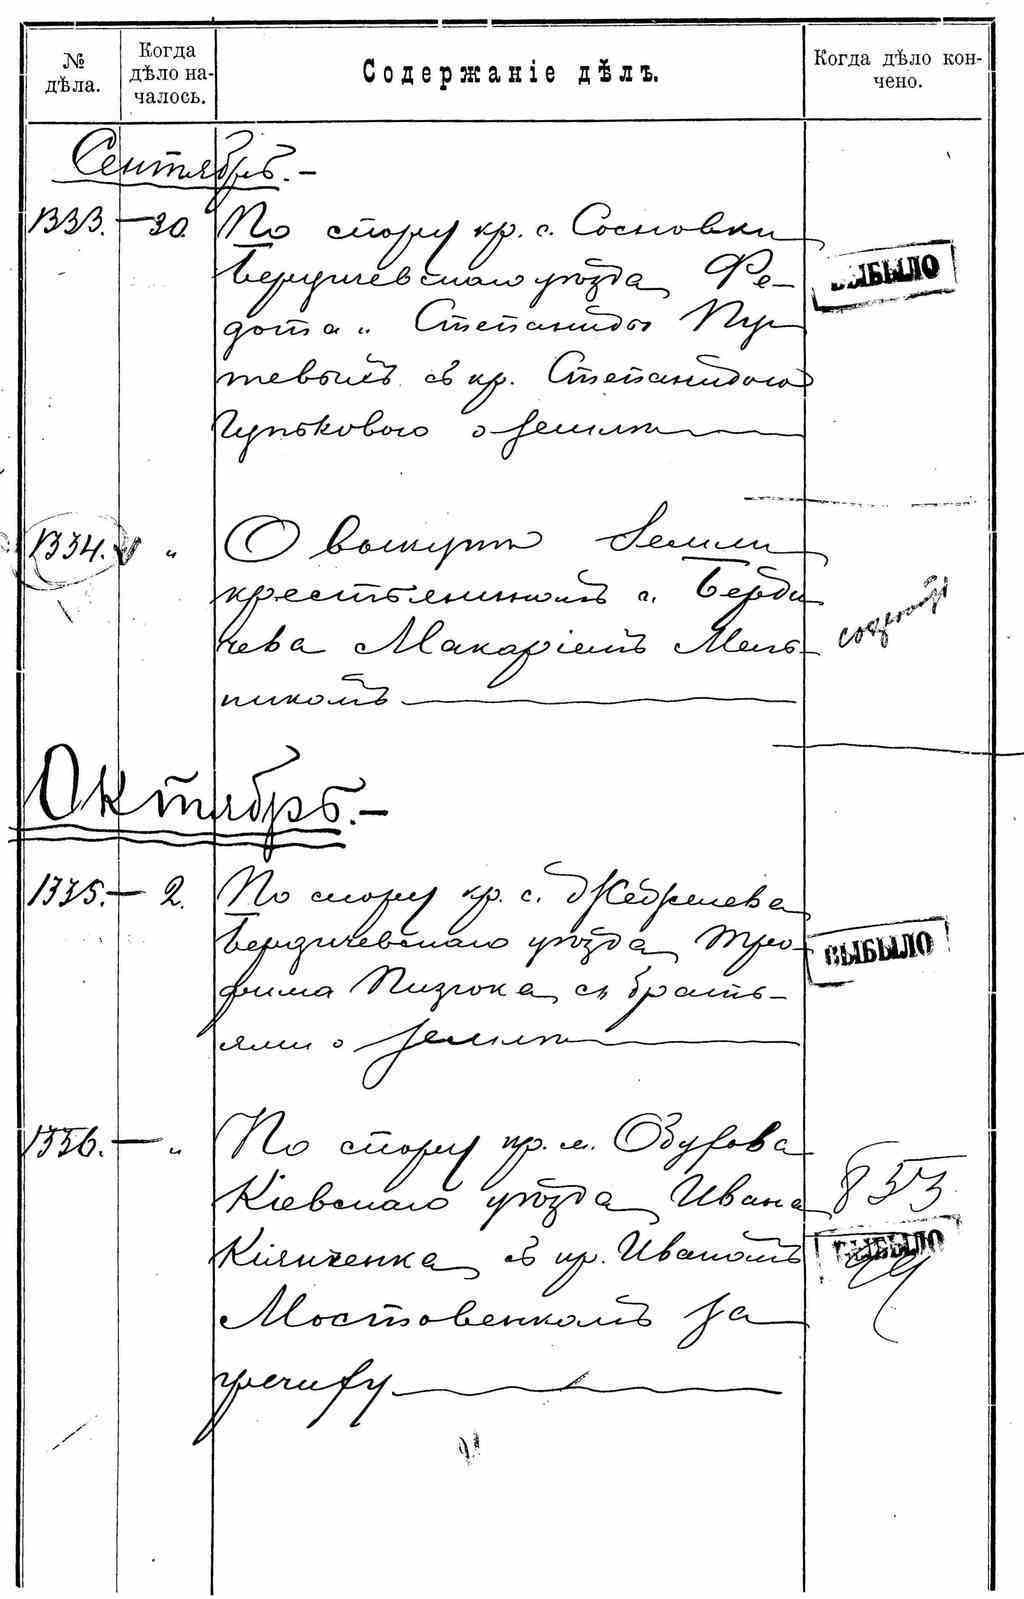 № дѣла.
Когда дѣло началось.
Содержаніе дѣлъ.
Когда дѣло кончено.
Сентябрь.—
1333.— 30. По спору кр. с. Сосновки
Бердичевскаго уѣзда Ѳе-
дота и Степаниды
съ кр. Степанидою
о землѣ
ВЫБЫЛО
1334. „ О выкупѣ земли
крестьяниномъ г. Бердичева
Макаріемъ Мель-
никомъ
Октябрь.—
1335.— 2. По спору кр. с.
Бердичевскаго уѣзда Тро-
фима съ брать-
ями о землѣ
ВЫБЫЛО
1336.— „ По спору кр. м.
Кіевскаго уѣзда Ивана
853
Кіянченка съ кр. Иваномъ
ВЫБЫЛО
Мостовенкомъ за